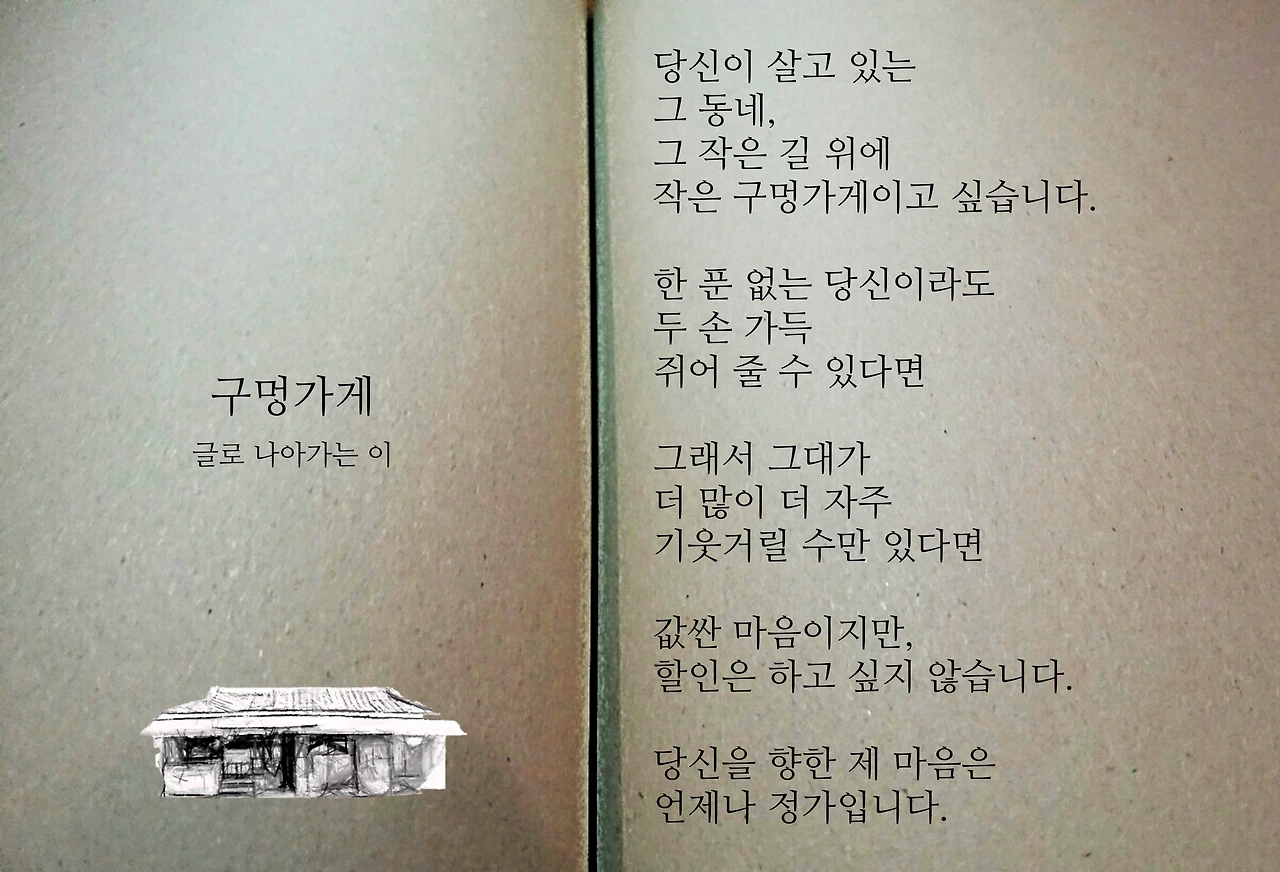 구멍가게
글로 나아가는 이
당신이 살고 있는
그 동네,
그 작은 길 위에
작은 구멍가게이고 싶습니다.
한 푼 없는 당신이라도
두 손 가득
쥐어 줄 수 있다면
그래서 그대가
더 많이 더 자주
기웃거릴 수만 있다면
값싼 마음이지만,
할인은 하고 싶지 않습니다.
당신을 향한 제 마음은
언제나 정가입니다.